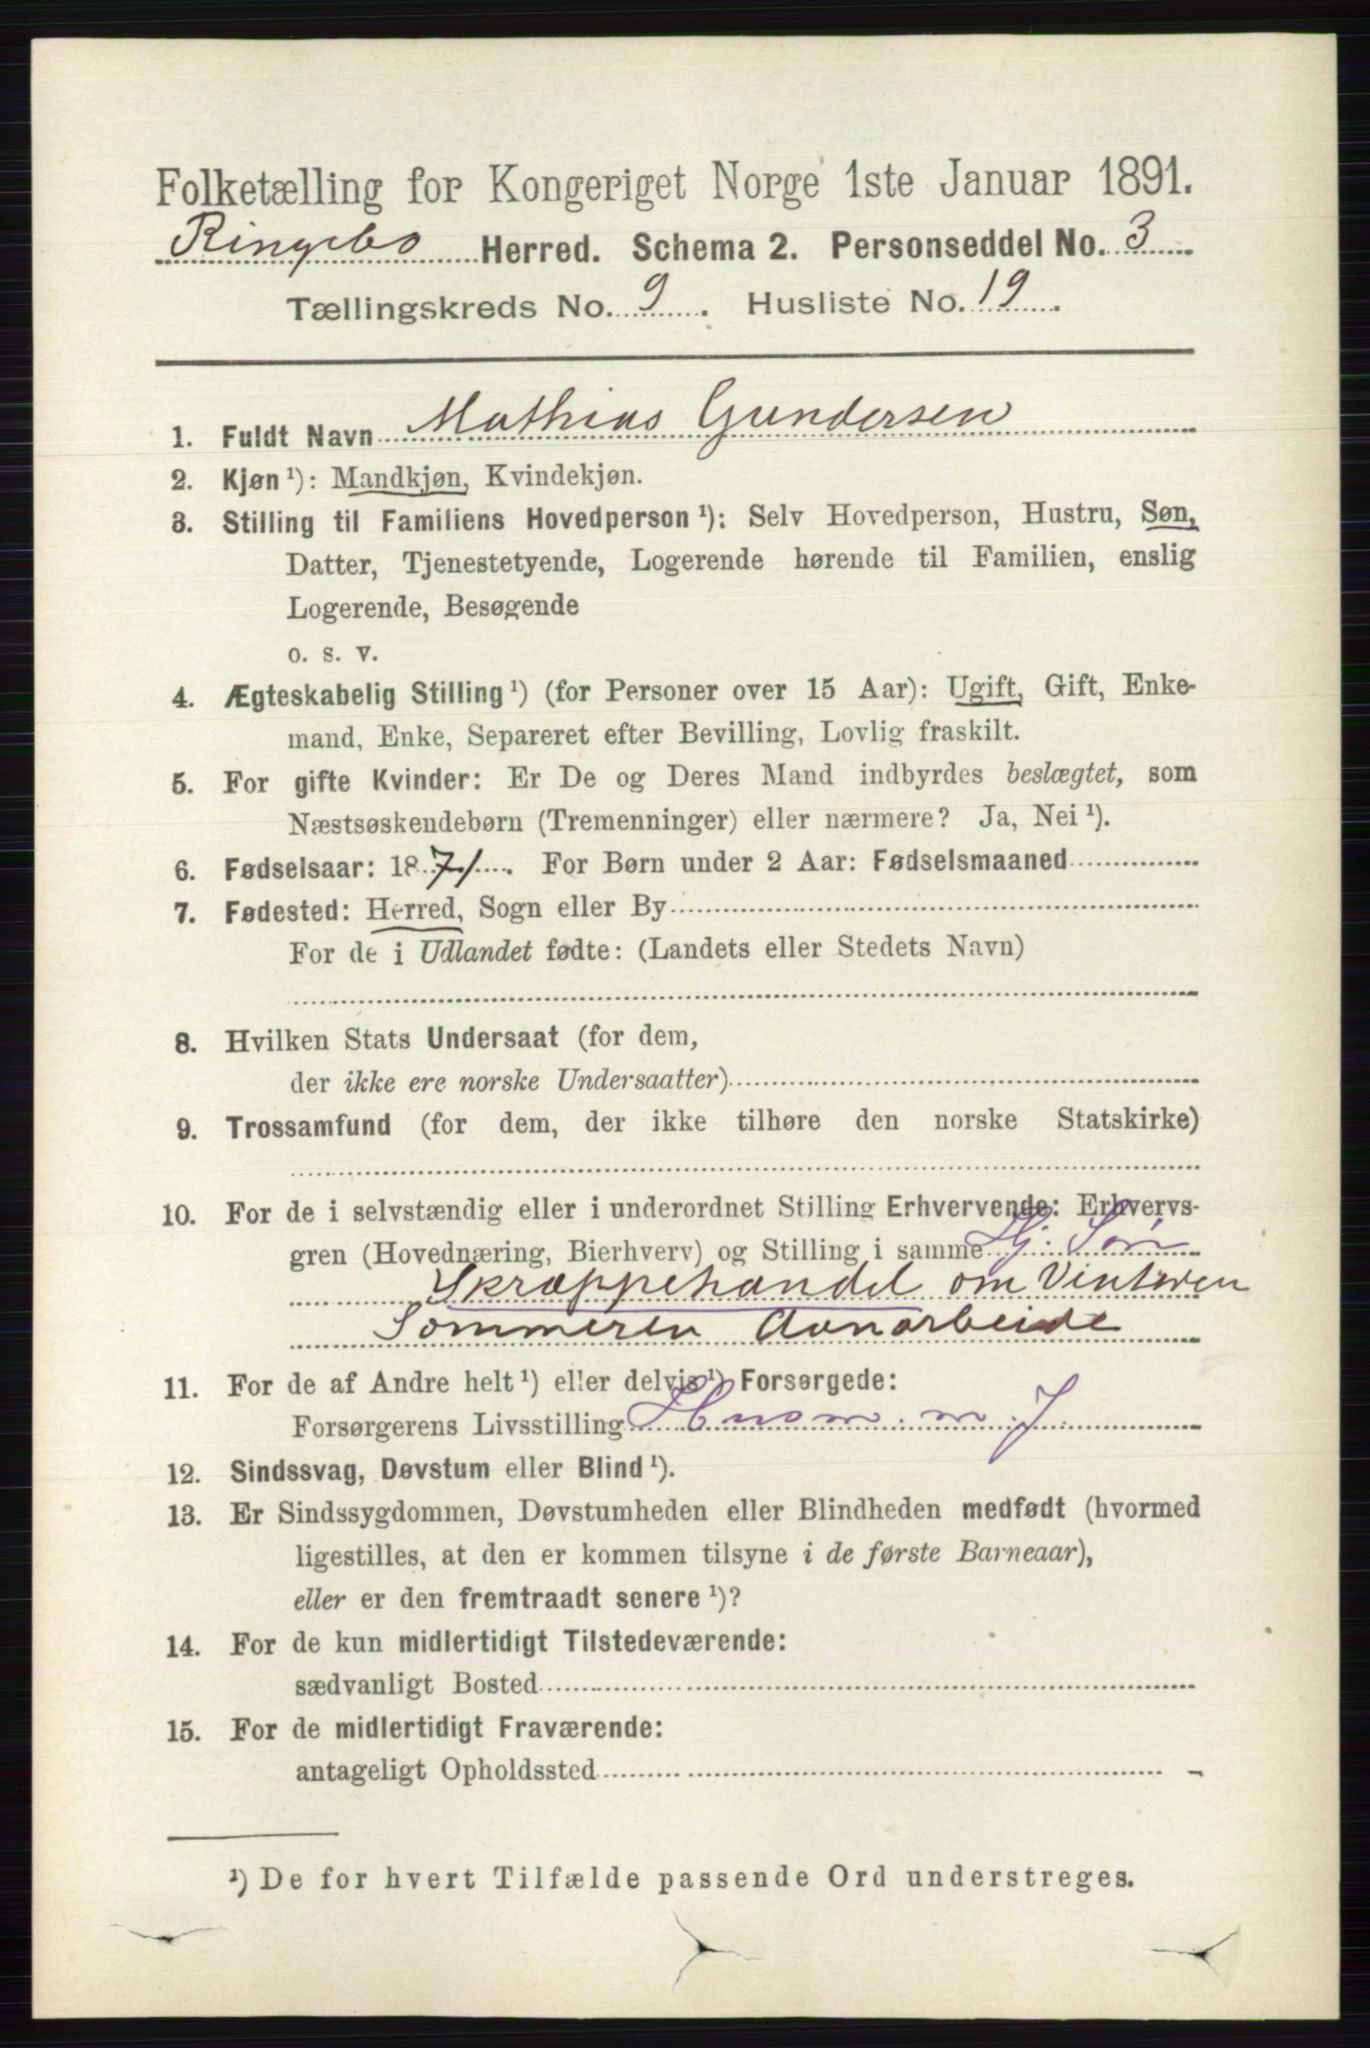 Folketælling for Kongeriget Norge 1ste Januar 1891.
Ringebo Herred. Schema 2. Personseddel No. 3
Tællingskreds No. 9. Husliste No. 19.
1. Fuldt Navn Mathias Gundersen
2. Kjøn ¹): Mandkjøn, Kvindekjøn.
3. Stilling til Familiens Hovedperson ¹): Selv Hovedperson, Hustru, Søn,
Datter, Tjenestetyende, Logerende hørende til Familien, enslig
Logerende, Besøgende
o. s. v.
4. Ægteskabelig Stilling ¹) (for Personer over 15 Aar): Ugift, Gift, Enke-
mand, Enke, Separeret efter Bevilling, Lovlig fraskilt.
5. For gifte Kvinder: Er De og Deres Mand indbyrdes beslægtet, som
Næstsøskendebørn (Tremenninger) eller nærmere? Ja, Nei ¹).
6. Fødselsaar: 1871. For Børn under 2 Aar: Fødselsmaaned
7. Fødested: Herred, Sogn eller By
For de i Udlandet fødte: (Landets eller Stedets Navn)
8. Hvilken Stats Undersaat (for dem,
der ikke ere norske Undersaatter)
9. Trossamfund (for dem, der ikke tilhøre den norske Statskirke)
10. For de i selvstændig eller i underordnet Stilling Erhvervende: Erhvervs-
gren (Hovednæring, Bierhverv) og Stilling i samme Hj. Søn
Skræppehandel om Vinteren
Sommeren Aonarbeide
11. For de af Andre helt ¹) eller delvis ¹) Forsørgede:
Forsørgerens Livsstilling Husm. m. J.
12. Sindssvag, Døvstum eller Blind ¹).
13. Er Sindssygdommen, Døvstumheden eller Blindheden medfødt (hvormed
ligestilles, at den er kommen tilsyne i de første Barneaar),
eller er den fremtraadt senere ¹)?
14. For de kun midlertidigt Tilstedeværende:
sædvanligt Bosted
15. For de midlertidigt Fraværende:
antageligt Opholdssted
¹) De for hvert Tilfælde passende Ord understreges.